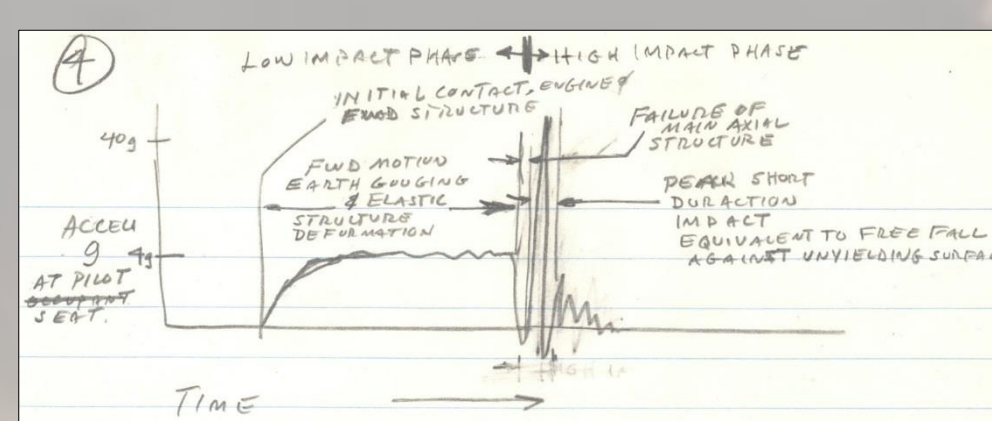 4
LOW IMPACT PHASE
HIGH IMPACT PHASE
INITIAL CONTACT, ENGINE &
FWD STRUCTURE
FAILURE OF
MAIN AXIAL
STRUCTURE
40g
FWD MOTION
EARTH GOUGING
& ELASTIC
STRUCTURE
DEFORMATION
PEAK SHORT
DURACTION
IMPACT
EQUIVALENT TO FREE FALL
AGAINST UNYIELDING SURFA
ACCEL
g
4g
AT PILOT
OCCUPANT
SEAT.
TIME